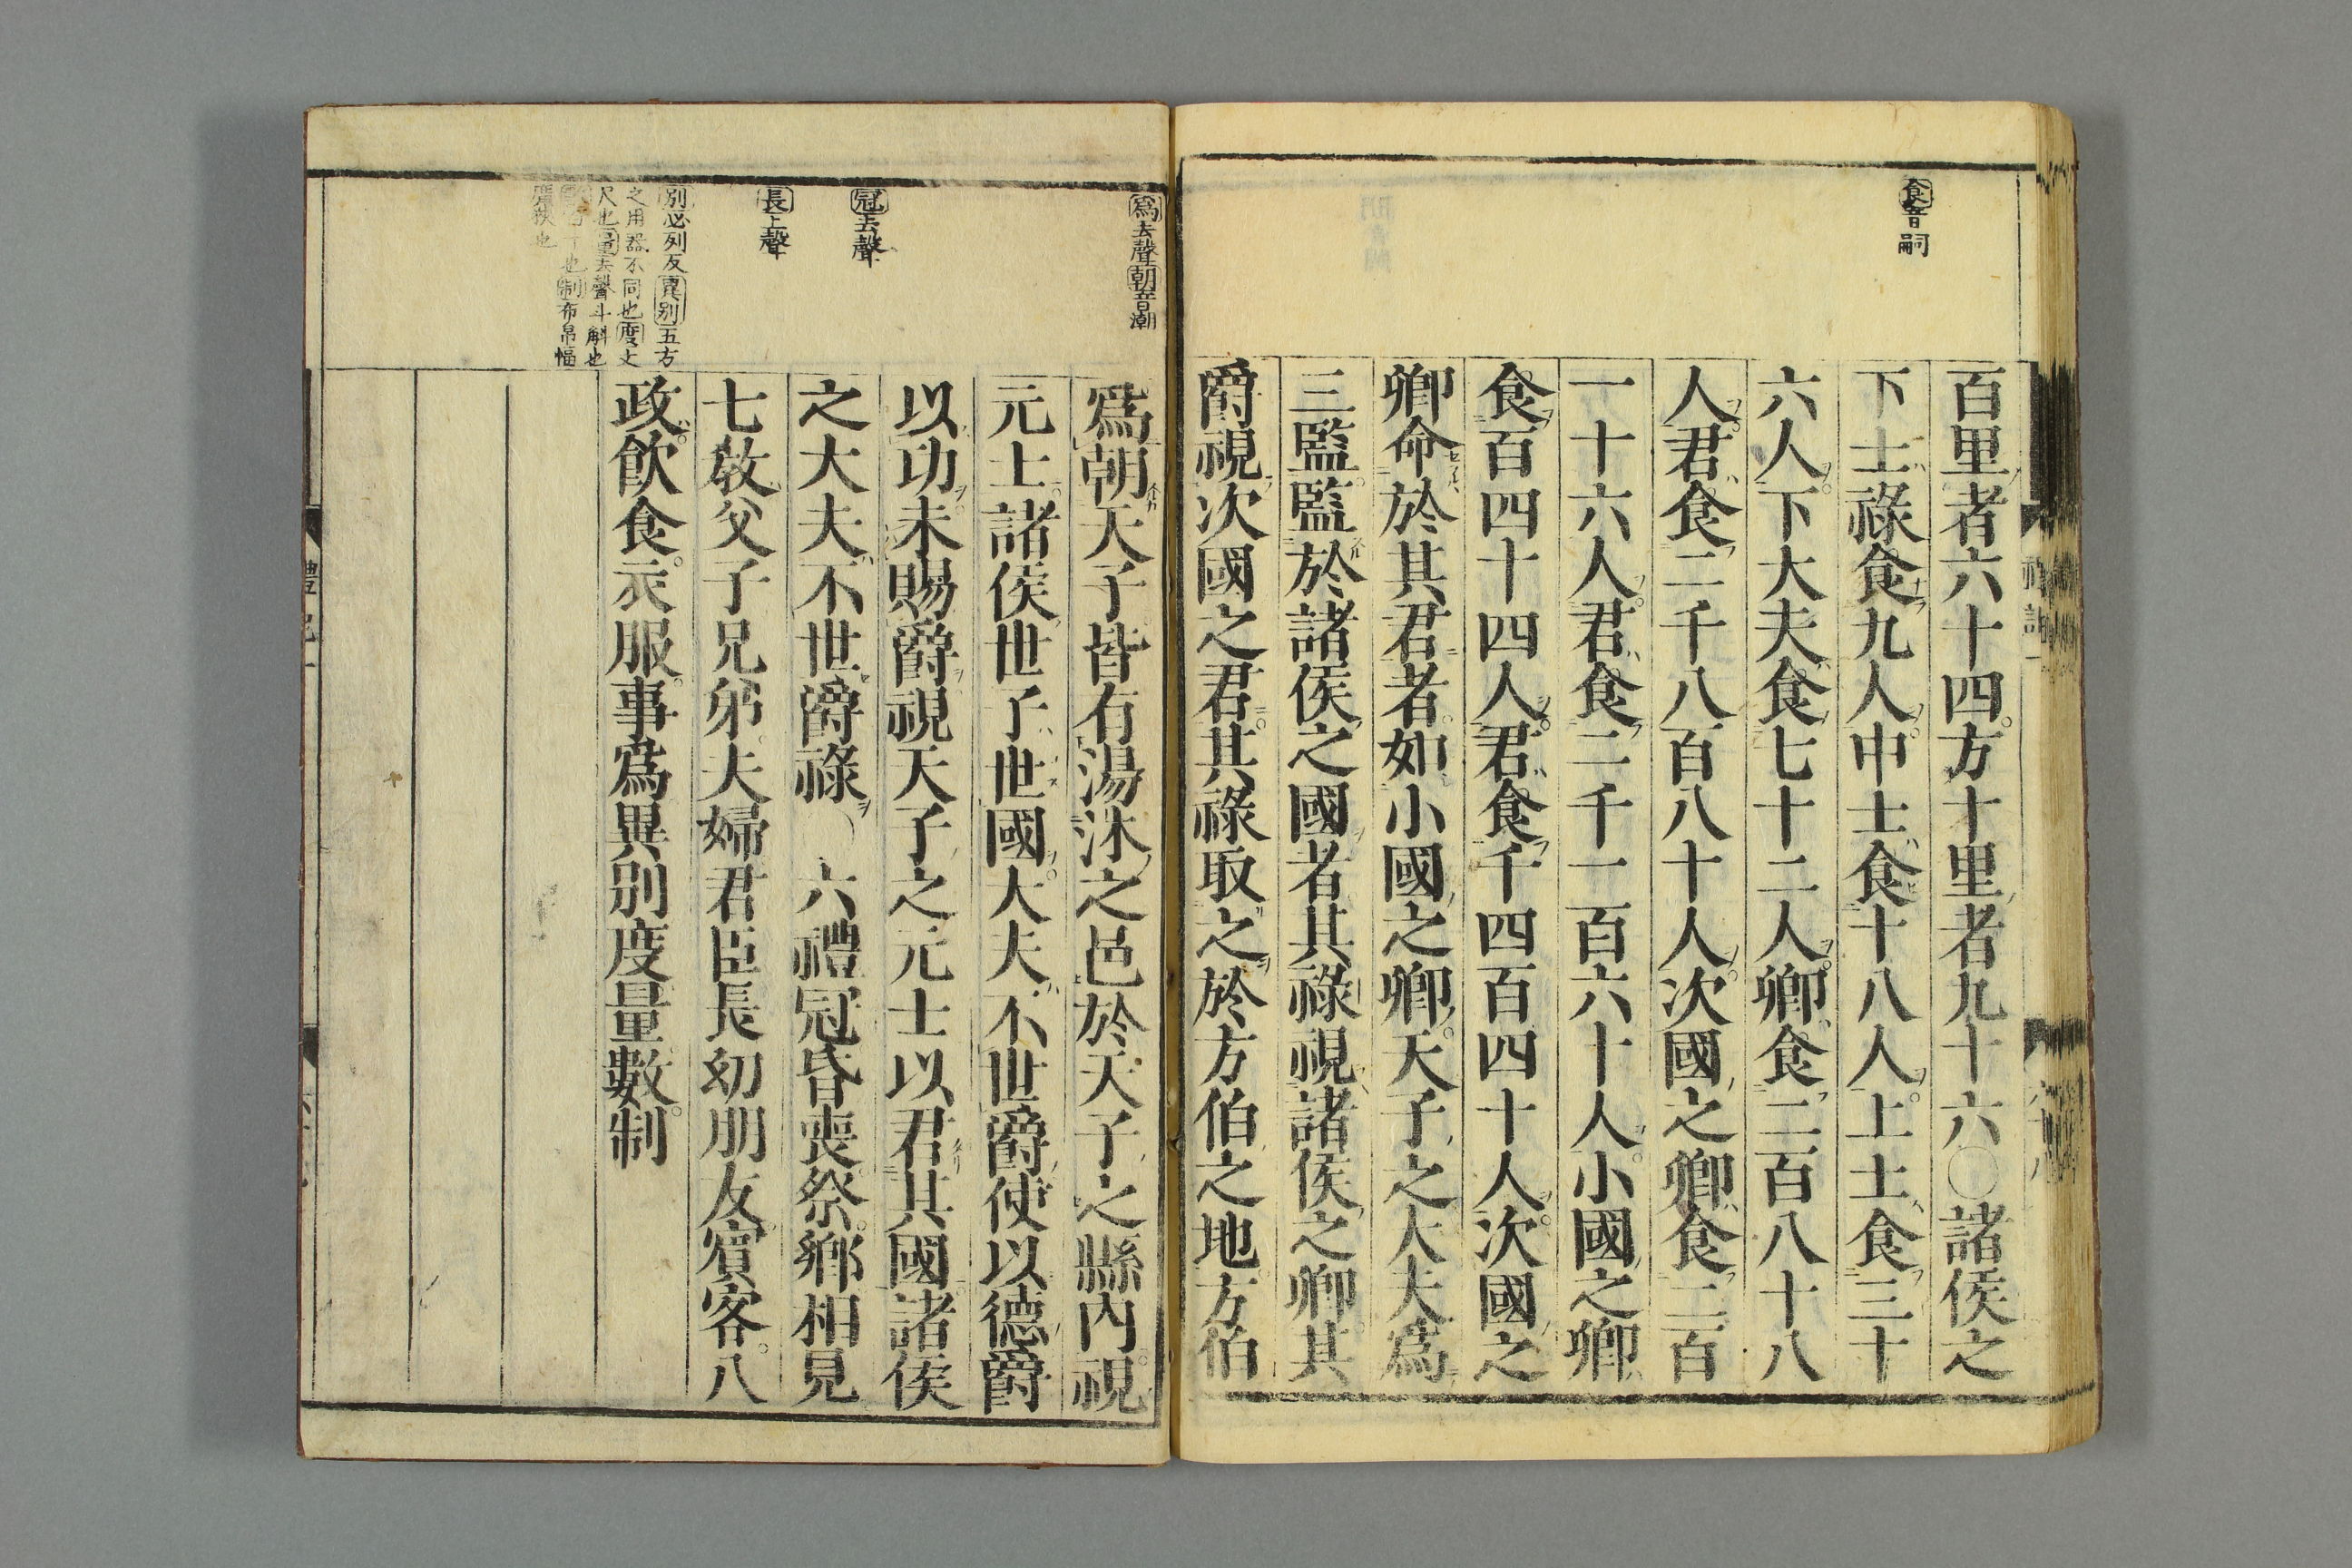 食音嗣
百里者六十四方十里者九十六○諸侯之
下士祿食九人中士食十八人上士食三十
六人下大夫食七十二人卿食二百八十八
人君食二千八百八十人次國之卿食二百
一十六人君食二千一百六十人小國之卿
食百四十四人君食千四百四十人次國之
卿命於其君者如小國之卿天子之大夫爲
三監監於諸侯之國者其祿視諸侯之卿其
爵視次國之君其祿取之於方伯之地方伯
爲去聲朝音潮
冠去聲
長上聲
別必列反異別五方
之用器不同也度丈
尺也量去聲斗斛也
也制布帛幅
廣狹也
爲朝天子皆有湯沐之邑於天子之縣內視
元士諸侯世子世國大夫不世爵使以德爵
以功未賜爵視天子之元士以君其國諸侯
之大夫不世爵祿 六禮冠昏喪祭鄉相見
七教父子兄弟夫婦君臣長幼朋友賓客八
政飲食衣服事爲異別度量數制